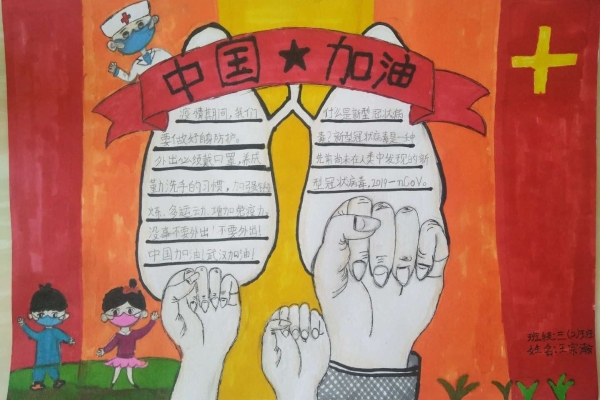 中国★加油
疫情期间,我们
要做好自身防护。
外出必须戴口罩,养成
勤洗手的习惯,加强锻
炼、多运动、增加免疫力。
没事不要外出!不要外出!
中国加油!武汉加油!
什么是新型冠状病
毒?新型冠状病毒是一种
先前尚未在人类中发现的新
型冠状病毒,2019-nCoV。
班级:三
姓名:王